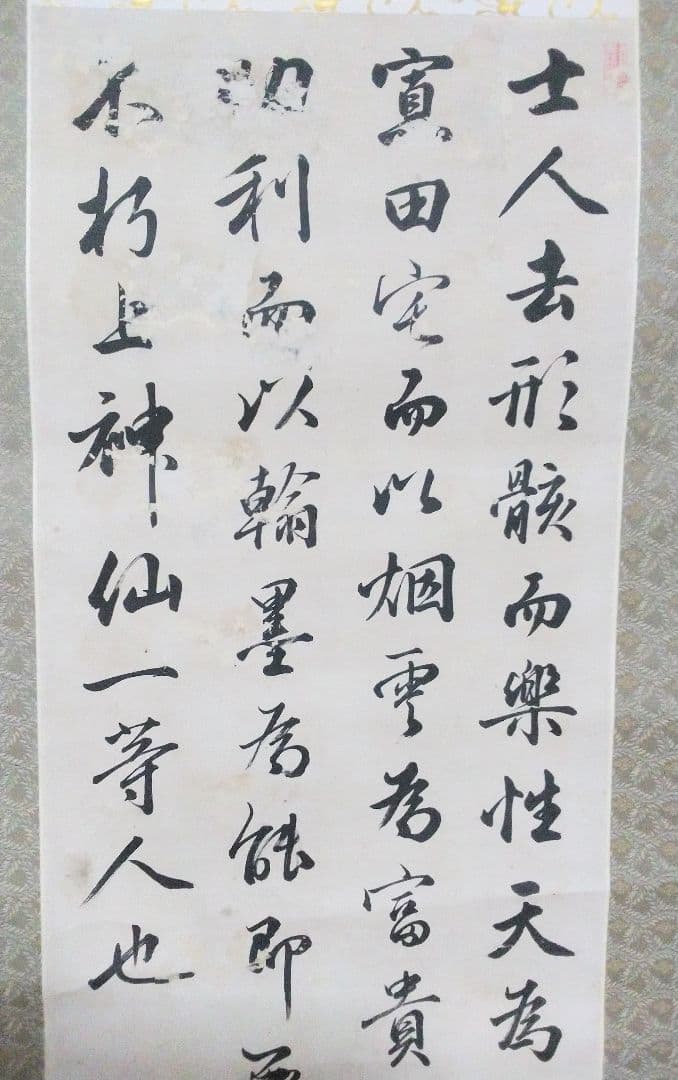 士人去形骸而樂性天為
寘田宅而以烟雲為富貴
功利而以翰墨為能即
不朽上神仙一等人也